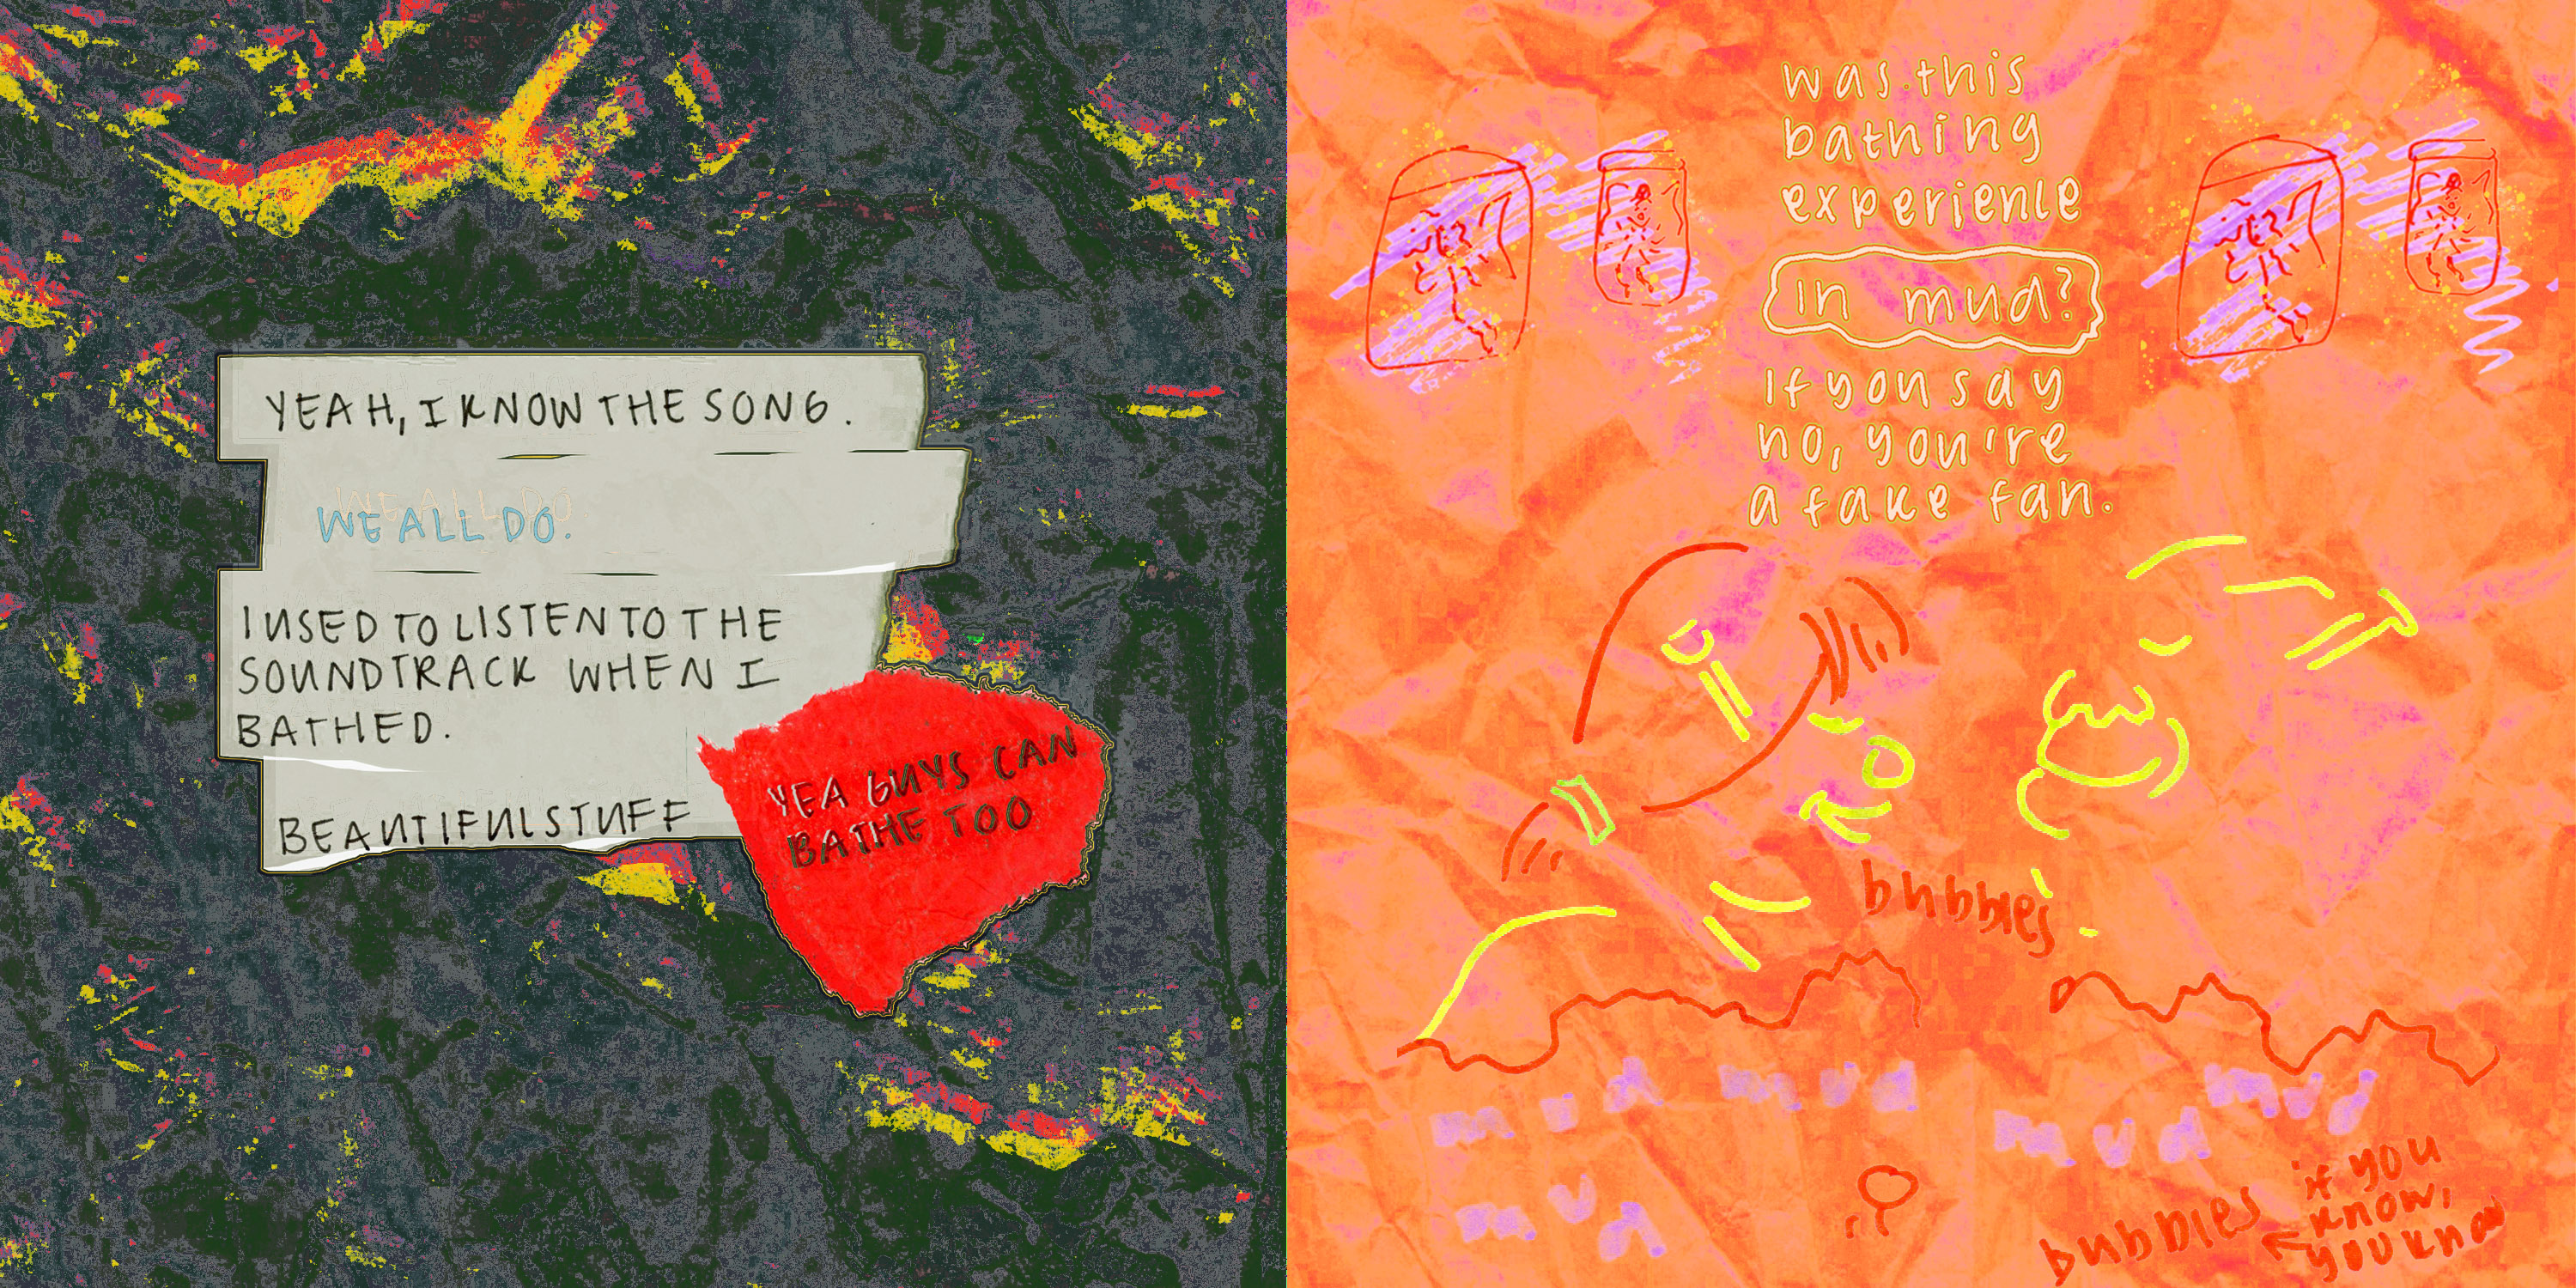 YEAH, I KNOW THE SONG.
WE ALL DO.
WE ALL DO.
I USED TO LISTEN TO THE
SOUNDTRACK WHEN I
BATHED.
BEAUTIFUL STUFF
YEA GUYS CAN
BATHE TOO
was this
bathing
experience
in mud?
If you say
no, you're
a fake fan.
bubbles
mud mud
mud mud
mud
bubbles
if you
know,
you know